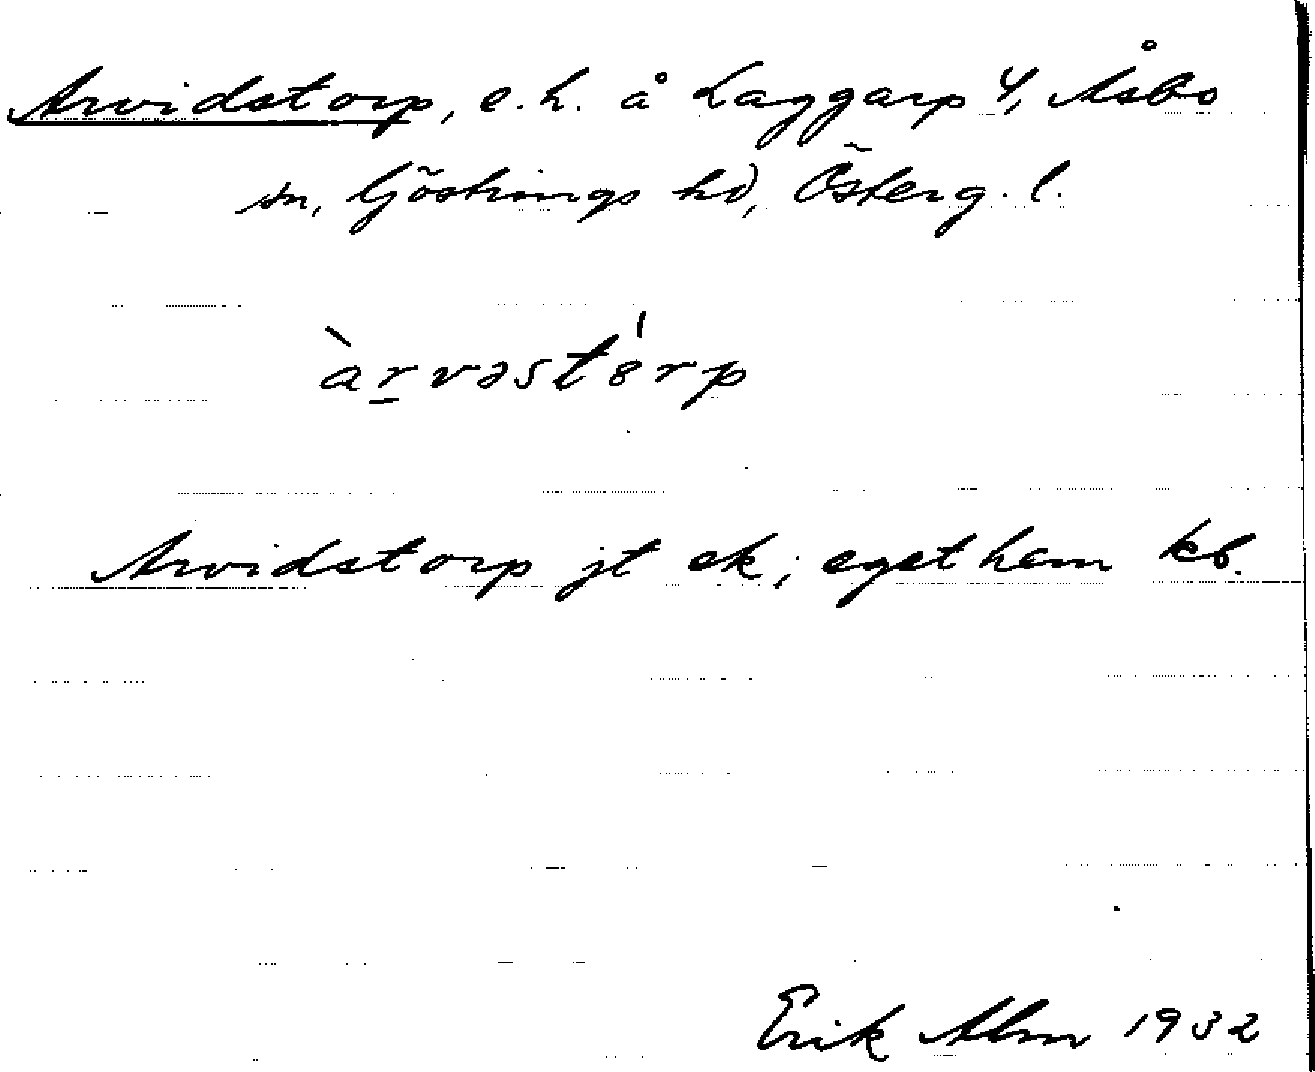 Arvidstorp, e.h. å Laggarp 4, Åsbo
sn, Göstrings hd, Österg. l.
àrvəstórp
Arvidstorp jt ek; eget hem kb.
Erik Alm 1932